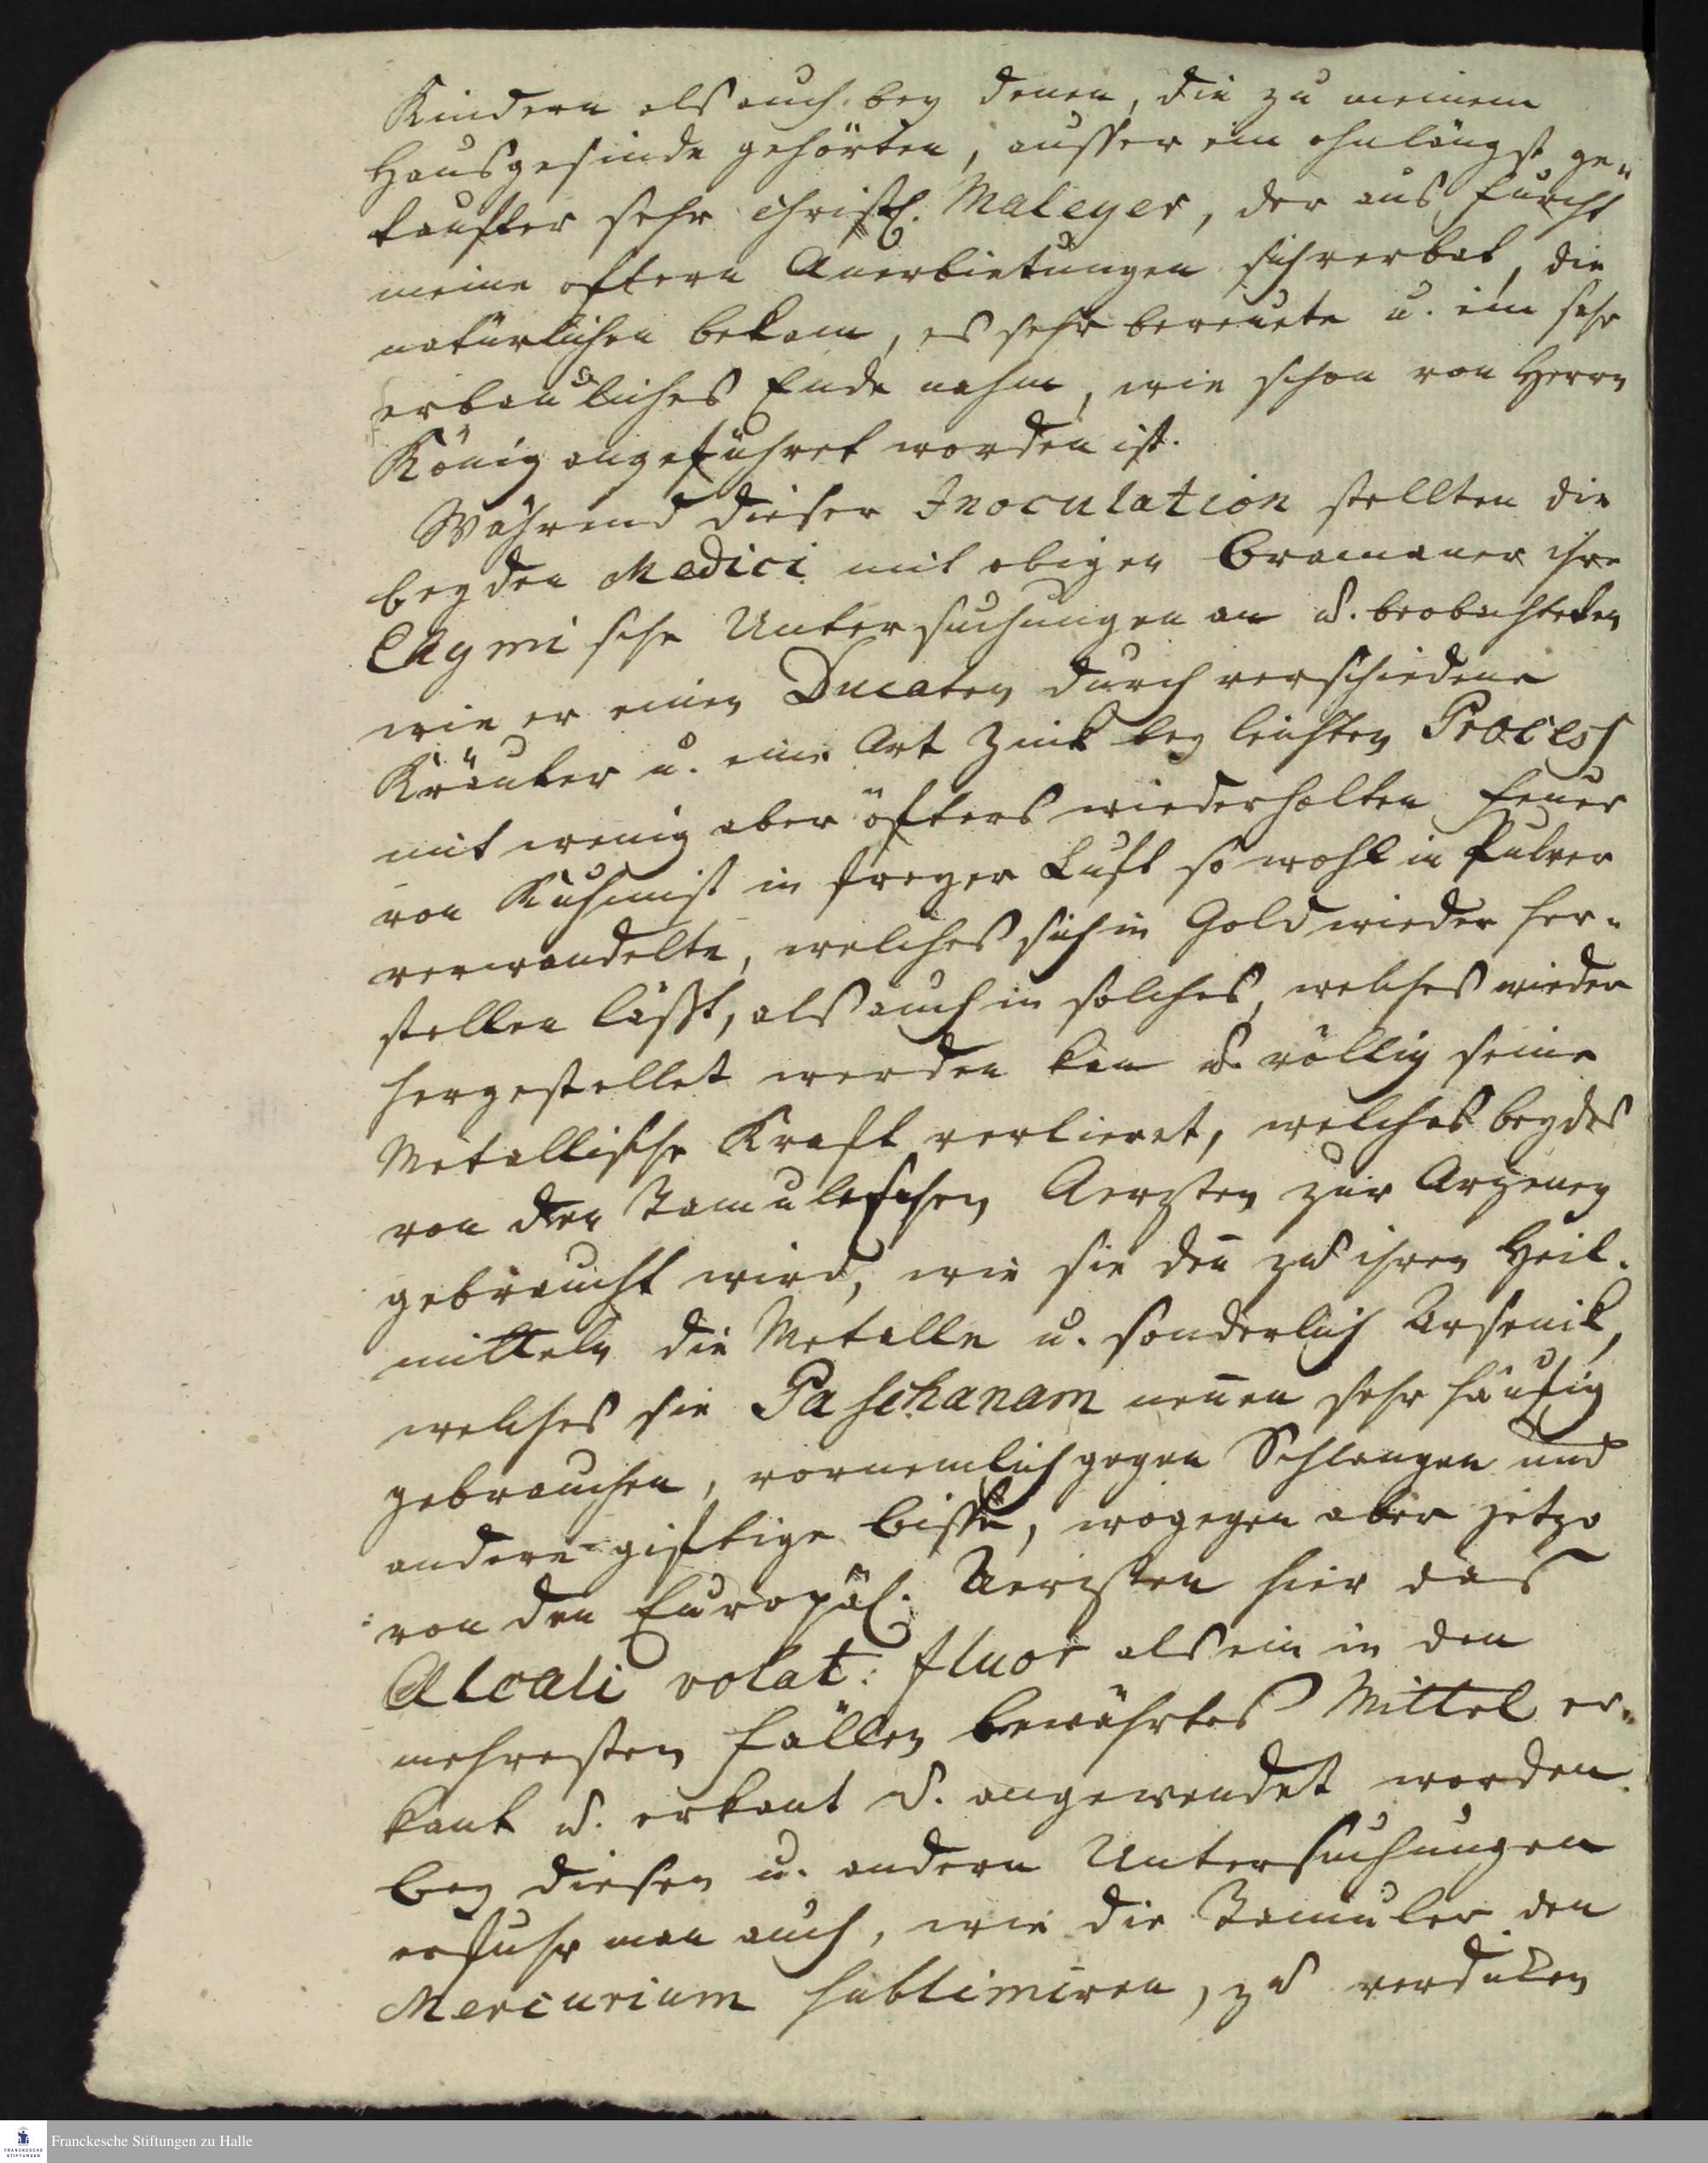 Kindern als auch bey denen, die zu meinem
Hausgesinde gehörten, ausser ein ohnlängst ge„
taufter sehr christl. Maleyer, der aus Furcht
meine oftern Anerbietungen sich verbat, die
natürlichen bekam, es sehr bereuete u. ein sehr
erbauliches Ende nahm, wie schon von Herrn
König angeführet worden ist.
Während dieser Inoculation stellten die
beyden Medici mit obigen Bramaner ihre
Chymische Untersuchungen an u. beobachteten
wie er einen Ducaten durch verschiedene
Kräuter u. eine Art Zink bey leichten Process
mit wenig aber öfters wiederholten Feuer
von Kuhmist in freyer Luft so wohl in Pulver
verwandelte, welches sich in Gold wieder her-
stellen lässt, als auch in solches, welches wieder
hergestellet werden kan u. völlig seine
Metallische Kraft verlieret, welches beydes
von den Tamulischen Aerzten zur Arzeney
gebraucht wird, wie sie deñ zu ihren Heil-
mitteln die Metalle u. sonderlich Arsenik,
welches sie Paschanam neñen sehr häufig
gebrauchen, vornemlich gegen Schlangen und
andere giftige Bisse, wogegen aber jetzo
von den Europäs. Aerzten hier das
Alcali volat: fluor als ein in den
mehresten Fällen bewährtes Mittel er„
kant u. erkant u. angewendet worden.
Bey diesen u. andern Untersuchungen
erfuhr man auch, wie die Tamuler den
Mercurium sublimiren, zu verdicken
Franckesche Stiftungen zu Halle